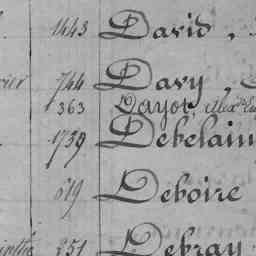 1443 David,
744 Davy,
363 Dayot, Alex
1739 Debelain
619 Deboire
251 Debray